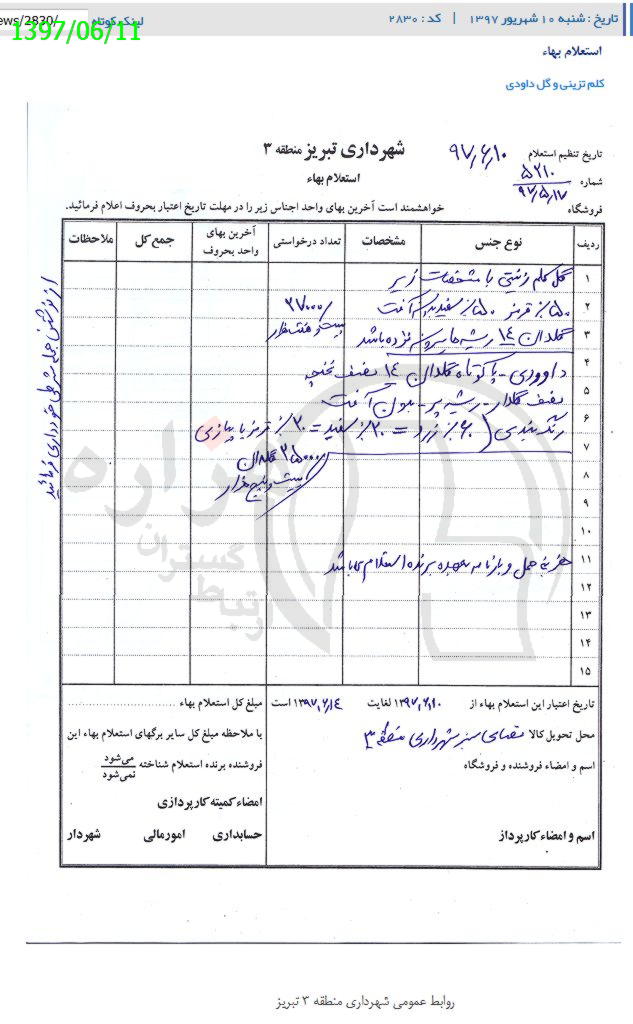 تاریخ : شنبه ۱۰ شهریور ۱۳۹۷ | کد : ۲۸۳۰
لینک کوتاه
ews/2830/
1397/06/11
استعلام بهاء
کلم تزیینی و گل داودی
شهرداری تبریز منطقه ۳
استعلام بهاء
تاریخ تنظیم استعلام ۹۷/۶/۱۰
شماره ۵۲۱۰
۹۷/۵/۱۷
فروشگاه
خواهشمند است آخرین بهای واحد اجناس زیر را در مهلت تاریخ اعتبار بحروف اعلام فرمائید.
ردیف نوع جنس مشخصات تعداد درخواستی آخرین بهای واحد بحروف جمع کل ملاحظات
۱ گل کلم زینتی با مشخصات زیر
۲ ۵۰٪ قرمز ۵۰٪ سفید بدون آفت ۲۷۰۰۰
بیست و هفت هزار
۳ گلدان ۱۴ ریشه ها بیرون نزده باشد
۴ داوودی - پا کوتاه گلدان ۱۴ نصف غنچه
۵ نصف گلدار - ریشه پر - بدون آفت
۶ رنگ بندی ( ۶۰٪ زرد = ۲۰٪ سفید = ۲۰٪ قرمز یا پیازی
۷ ۲۵۰۰۰ گلدان
۸ بیست و پنج هزار
۹
۱۰
۱۱ هزینه حمل و بارنامه بعهده برنده استعلام می باشد
۱۲
۱۳
۱۴
۱۵
از نوشتن جملات شرطی خودداری فرمائید
تاریخ اعتبار این استعلام بهاء از ۱۳۹۷/۶/۱۰ لغایت ۱۳۹۷/۶/۱۴ است
مبلغ کل استعلام بهاء
محل تحویل کالا فضای سبز شهرداری منطقه ۳
با ملاحظه مبلغ کل سایر برگهای استعلام بهاء این
اسم و امضاء فروشنده و فروشگاه
فروشنده برنده استعلام شناخته می‌شود
نمی‌شود
امضاء کمیته کارپردازی
اسم و امضاء کارپرداز
حسابداری امورمالی شهردار
هزاره
گستران
ارتباط
روابط عمومی شهرداری منطقه ۳ تبریز